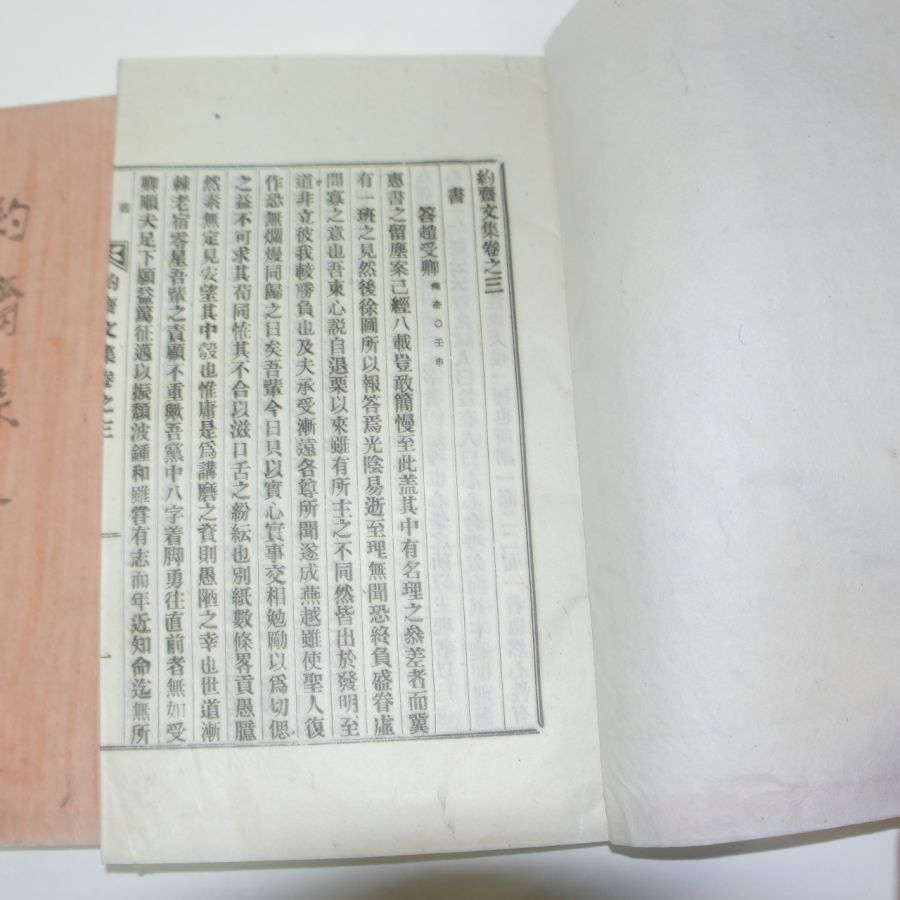 約齋文集卷之三
書
答趙受卿 〇壬申
惠書之留塵案已經八載豈敢簡慢至此蓋其中有名理之叅差者而冀
有一班之見然後徐圖所以報答焉光陰易逝至理無聞恐終負盛眷虛
問寡之意也吾東心説自退栗以來雖有所主之不同然皆出於發明至
道非立彼我較勝負也及夫承受漸遠各尊所聞遂成燕越雖使聖人復
作恐無爛熳同歸之日矣吾輩今日只以實心實事交相勉勵以爲切偲
之益不可求其苟同惟其不合以滋口舌之紛紜也別紙數條畧貢愚臆
然素無定見安望其中彀也惟庸是爲講磨之資則愚陋之幸也世道漸
棘老宿零星吾輩之責顧不重歟吾黨中八字着脚勇往直前者無如受
卿順夫足下願益篤征邁以振頹波鍾和雖嘗有志而年近知命迄無所
書
約齋文集卷之三
一